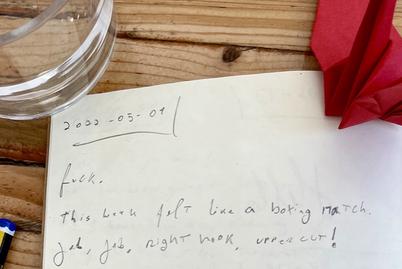 2022-05-01
fuck.
This week felt like a boxing match.
Jab, jab, right hook, uppercut!